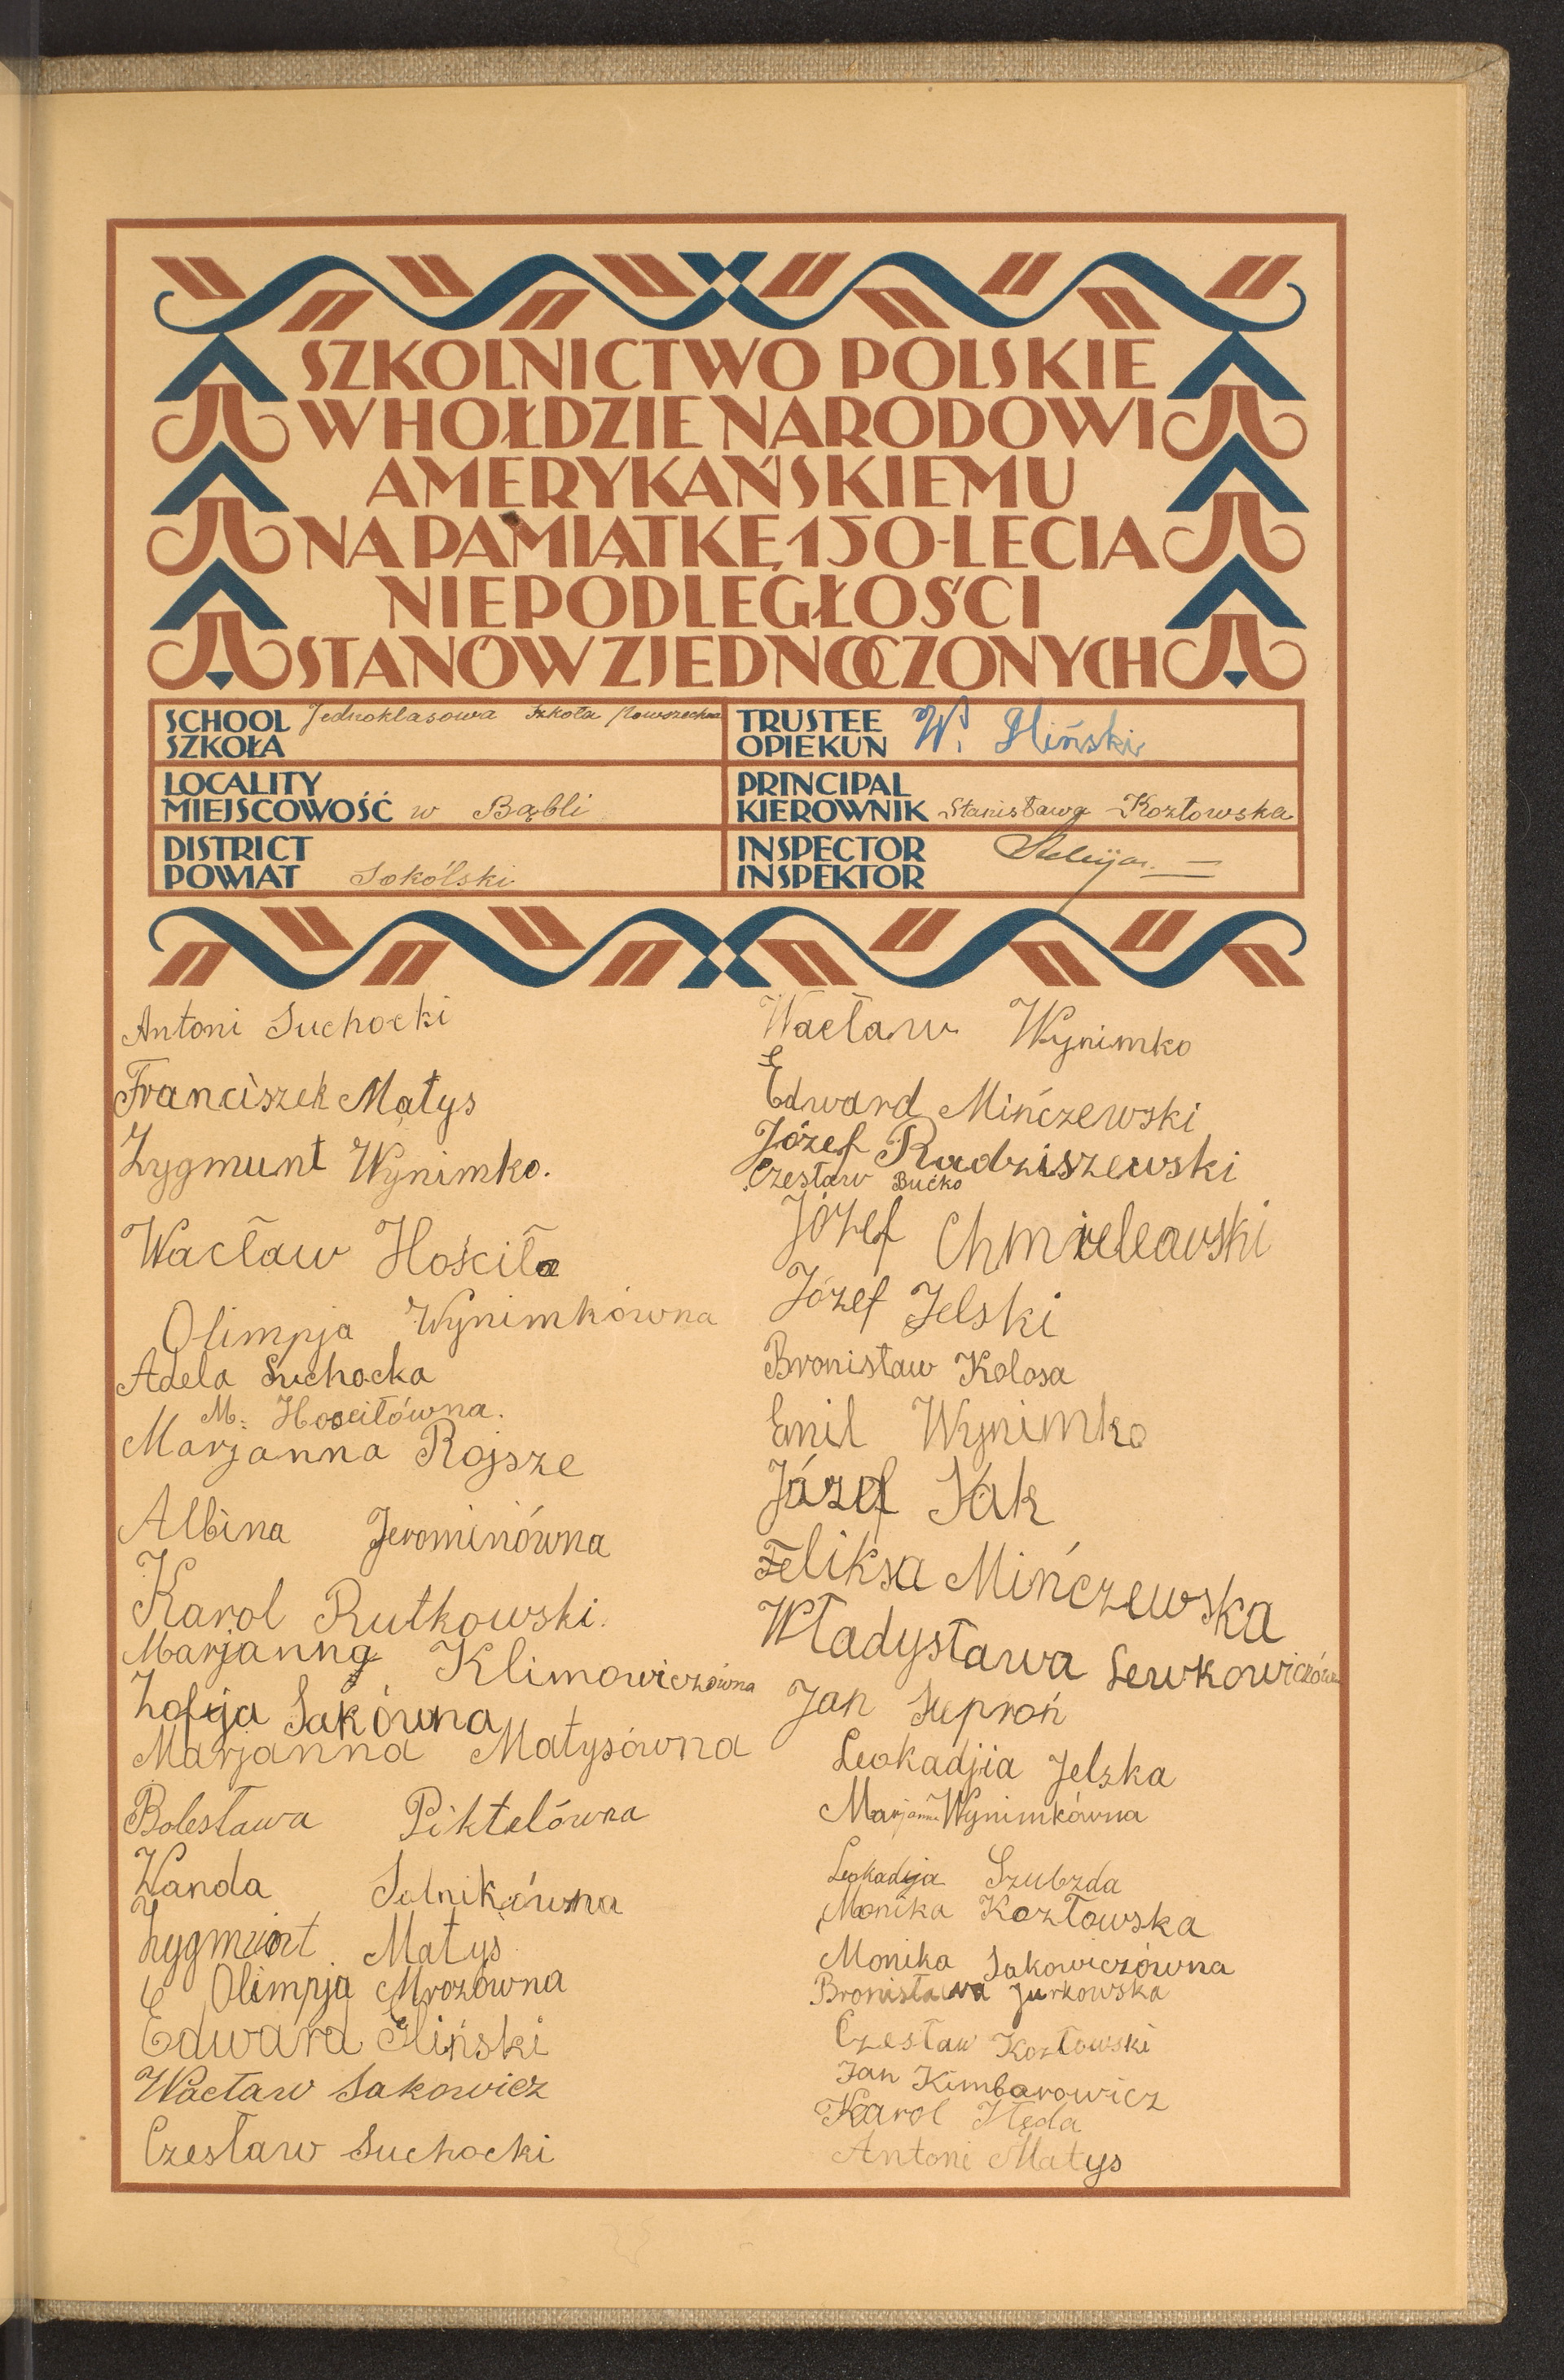 SZKOLNICTWO POLSKIE
W HOŁDZIE NARODOWI
AMERYKAŃSKIEMU
NA PAMIĄTKĘ 150-LECIA
NIEPODLEGŁOŚCI
STANÓW ZJEDNOCZONYCH
SCHOOL
SZKOŁA Jednoklasowa Szkoła Powszechna
TRUSTEE
OPIEKUN W. Iliński
LOCALITY
MIEJSCOWOŚĆ w Bąbli
PRINCIPAL
KIEROWNIK Stanisława Kozłowska
DISTRICT
POWIAT Sokólski
INSPECTOR
INSPEKTOR
Antoni Suchocki
Franciszek Matys
Zygmunt Wynimko.
Wacław Hościła
Olimpja Wynimkówna
Adela Suchocka
M. Hościłówna.
Marjanna Rojsze
Albina Jerominówna
Karol Rutkowski.
Marjanna Klimowiczówna
Zofija Sakówna
Marjanna Matysówna
Bolesława Piktelówna
Wanda Solnikówna
Zygmunt Matys
Olimpja Mrozówna
Edward Iliński
Wacław Sakowicz
Czesław Suchocki
Wacław Wynimko
Edward Mińczewski
Józef Radziszewski
Czesław Bućko
Józef Chmielewski
Józef Jelski
Bronisław Kolosa
Emil Wynimko
Józef Sak
Feliksa Mińczewska
Władysława Lewkowiczówna
Jan Suproń
Leokadjia Jelska
Marjanna Wynimkówna
Leokadija Szubzda
Monika Kozłowska
Monika Sakowiczówna
Bronisława Jurkowska
Czesław Kozłowski
Jan Kimbarowicz
Karol
Antoni Matys